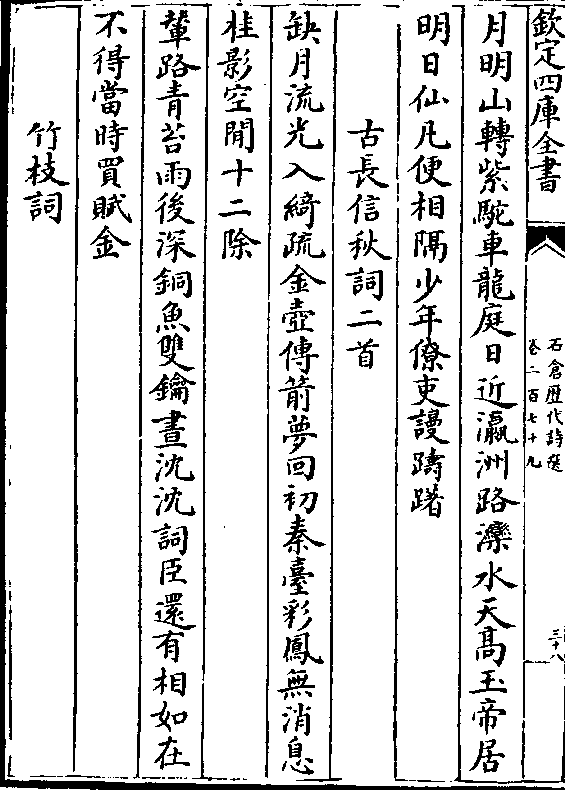 欽定四庫全書
石倉歷代詩選
卷二百七十九
三十八
月明山轉紫駝車龍庭日近瀛洲路灤水天髙玉帝居
明日仙凡便相隔少年僚吏謾躊躇
古長信秋詞二首
缺月流光入綺疏金壺傳箭夢回初秦臺彩鳳無消息
桂影空閒十二除
輦路青苔雨後深銅魚雙鑰晝沈沈詞臣還有相如在
不得當時買賦金
竹枝詞